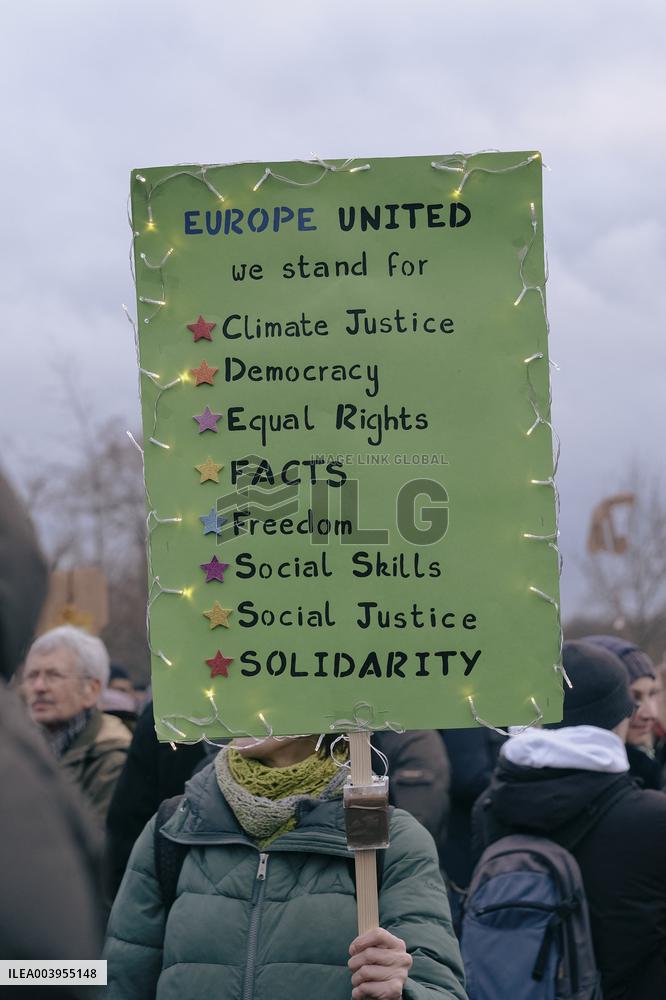 EUROPE UNITED
we stand for
Climate Justice
Democracy
Equal Rights
FACTS
IMAGE LINK GLOBAL
ILG
Freedom
Social Skills
Social Justice
SOLIDARITY
ILEA003955148